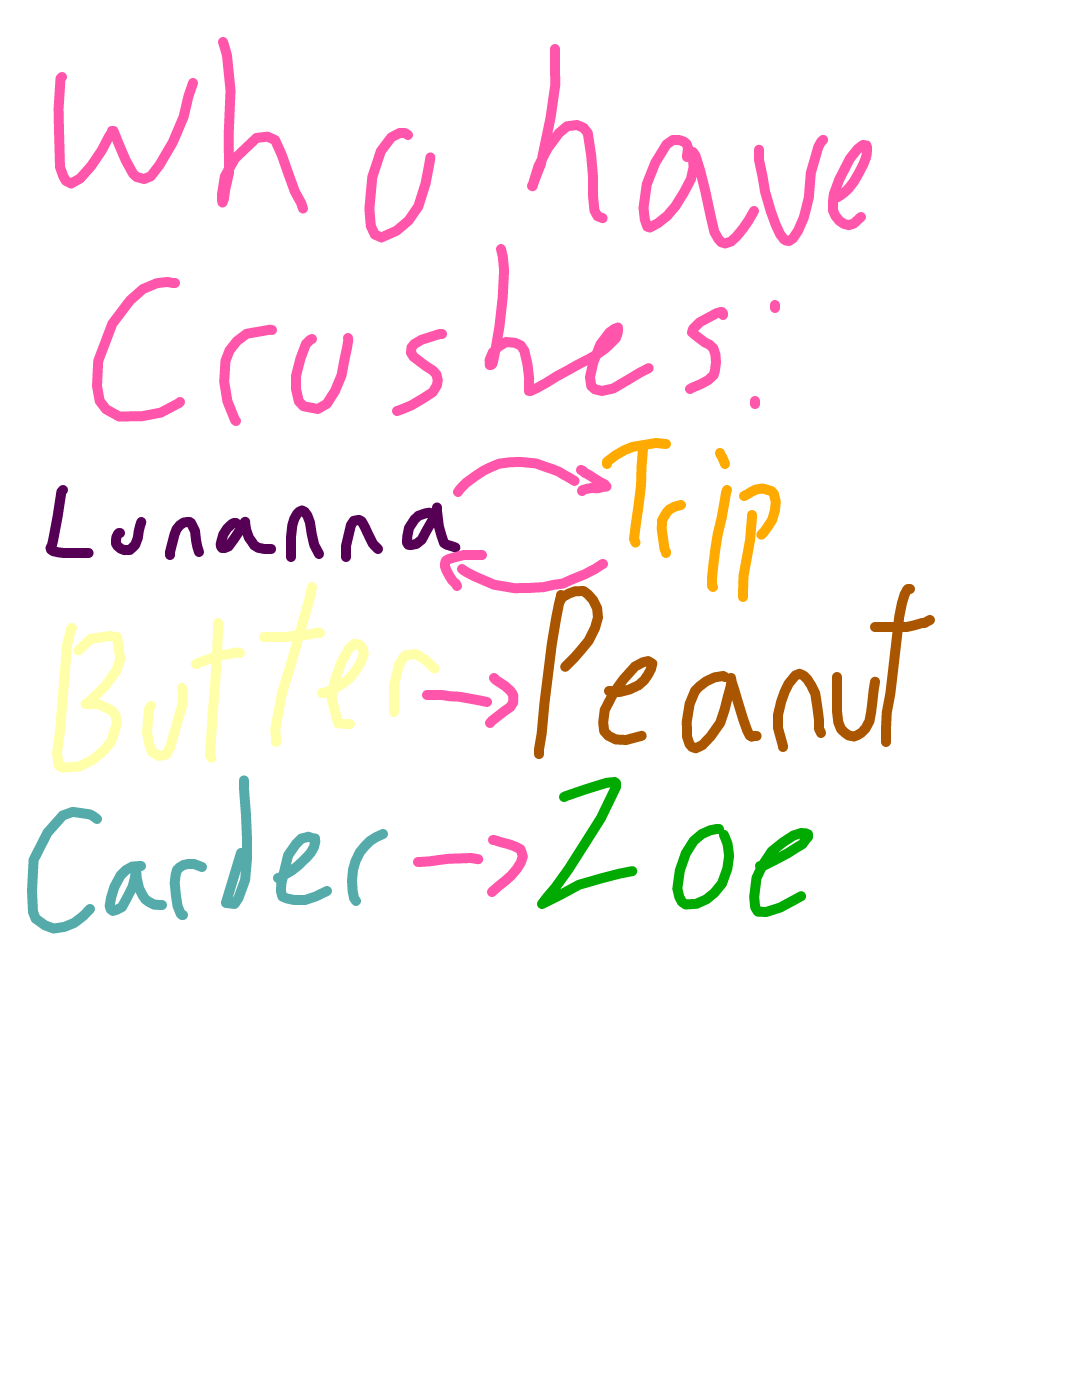 Who have
Crushes:
Lunanna Trip
Butter → Peanut
Carder → Zoe